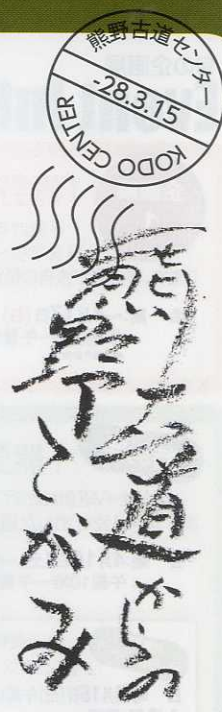 熊野古道センター
-28.3.15
KODO CENTER
熊野
古道からの
てがみ